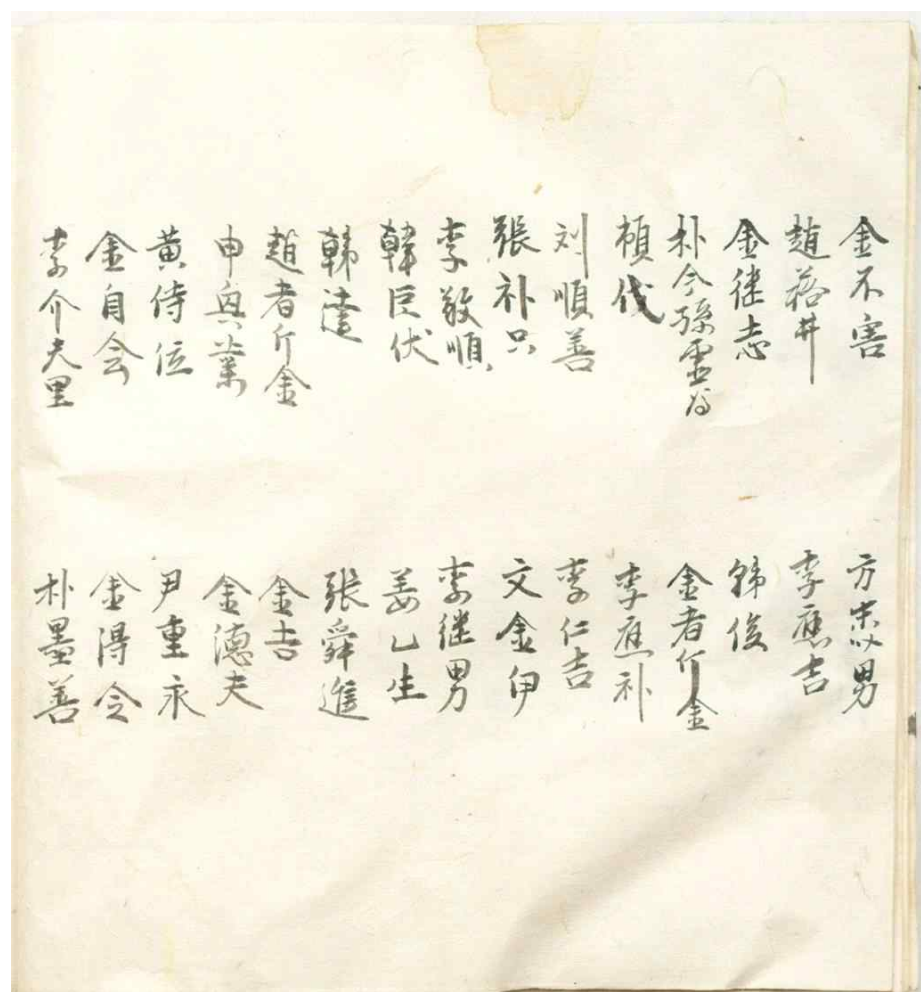 金不害
趙裕井
金継志
朴今孫
頓伐
刘順善
張补只
李敬順
韓巨伏
韩達
趙者斤金
申興業
黄侍位
金自会
李介夫里
方忠男
李應吉
韩俊
金者斤金
李應补
李仁吉
文金伊
李継男
姜乙生
張舜進
金吉
金德夫
尹重永
金得令
朴墨善